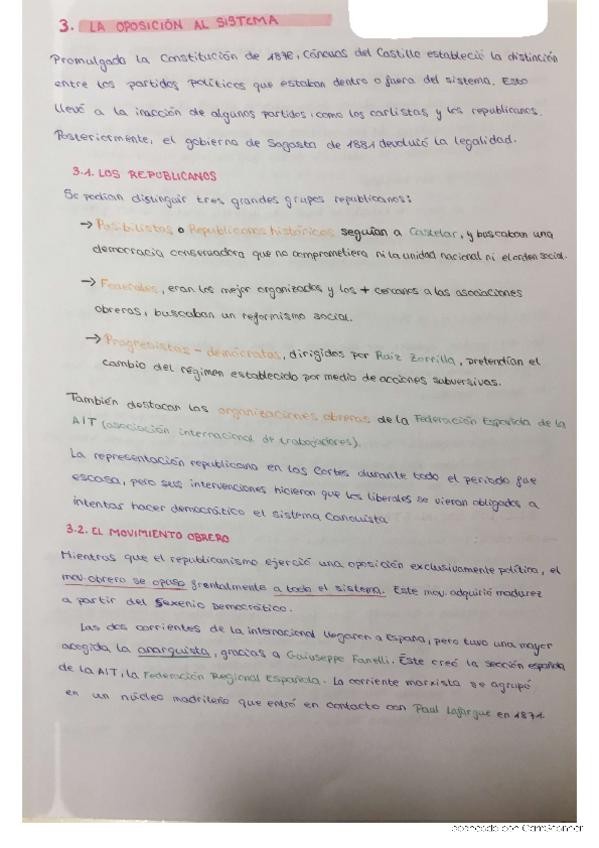 3. LA OPOSICIÓN AL SISTEMA
Promulgada la Constitución de 1876, Cánovas del Castillo estableció la distinción
entre los partidos políticos que estaban dentro o fuera del sistema. Esto
llevó a la inacción de algunos partidos, como los carlistas y los republicanos.
Posteriormente, el gobierno de Sagasta de 1881 devolvió la legalidad.
3.1. LOS REPUBLICANOS
Se podían distinguir tres grandes grupos republicanos:
→ Posibilistas o Republicanos históricos seguían a Castelar, y buscaban una
democracia conservadora que no comprometiera ni la unidad nacional ni el orden social.
→ Federales, eran los mejor organizados y los + cercanos a las asociaciones
obreras, buscaban un reformismo social.
→ Progresistas - demócratas, dirigidos por Ruiz Zorrilla, pretendían el
cambio del régimen establecido por medio de acciones subversivas.
También destacan las organizaciones obreras de la Federación Española de la
AIT (asociación internacional de trabajadores).
La representación republicana en las Cortes durante todo el período fue
escasa, pero sus intervenciones hicieron que los liberales se vieran obligados a
intentar hacer democrático el sistema Canovista
3.2. EL MOVIMIENTO OBRERO
Mientras que el republicanismo ejerció una oposición exclusivamente política, el
mov. obrero se opuso frentalmente a todo el sistema. Este mov. adquirió madurez
a partir del Sexenio Democrático.
Las dos corrientes de la internacional llegaron a España, pero tuvo una mayor
acogida la anarquista, gracias a Guiuseppe Fanelli. Éste creó la sección española
de la AIT, la Federación Regional Española. La corriente marxista se agrupó
en un núcleo madrileño que entró en contacto con Paul Lafargue en 1871.
Escaneado con CamScanner